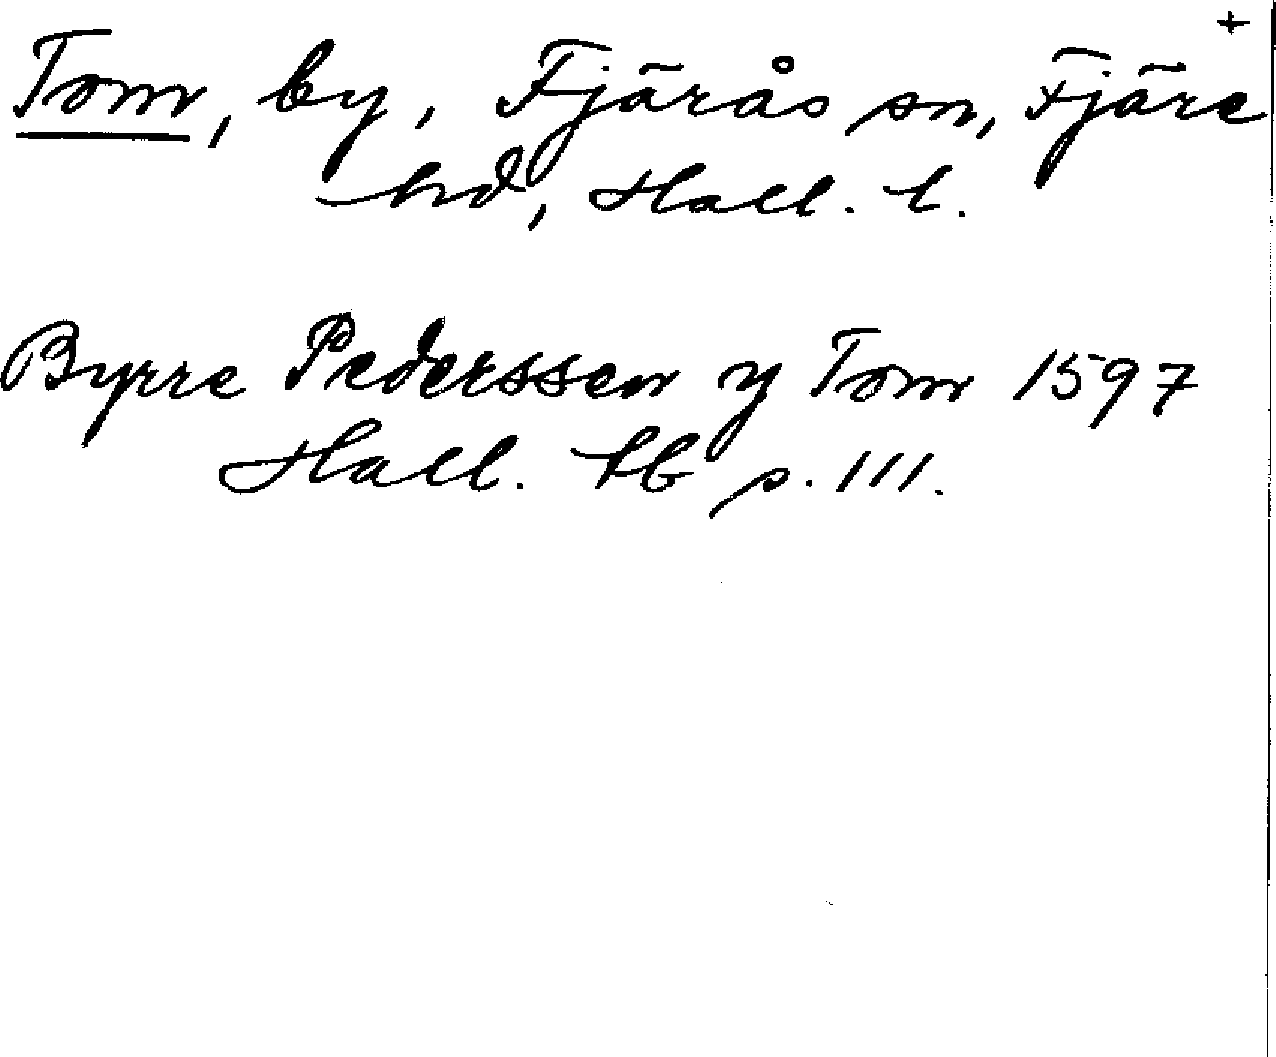 +
Tom, by, Fjärås sn, Fjäre
hd, Hall. l.
Byrre Pederssen y Tom 1597
Hall. tb p. 111.